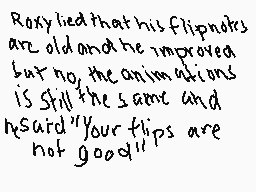 Roxy lied that his flipnotes
are old and he improved
but no, the animations
is still the same and
he said "Your flips are
not good"